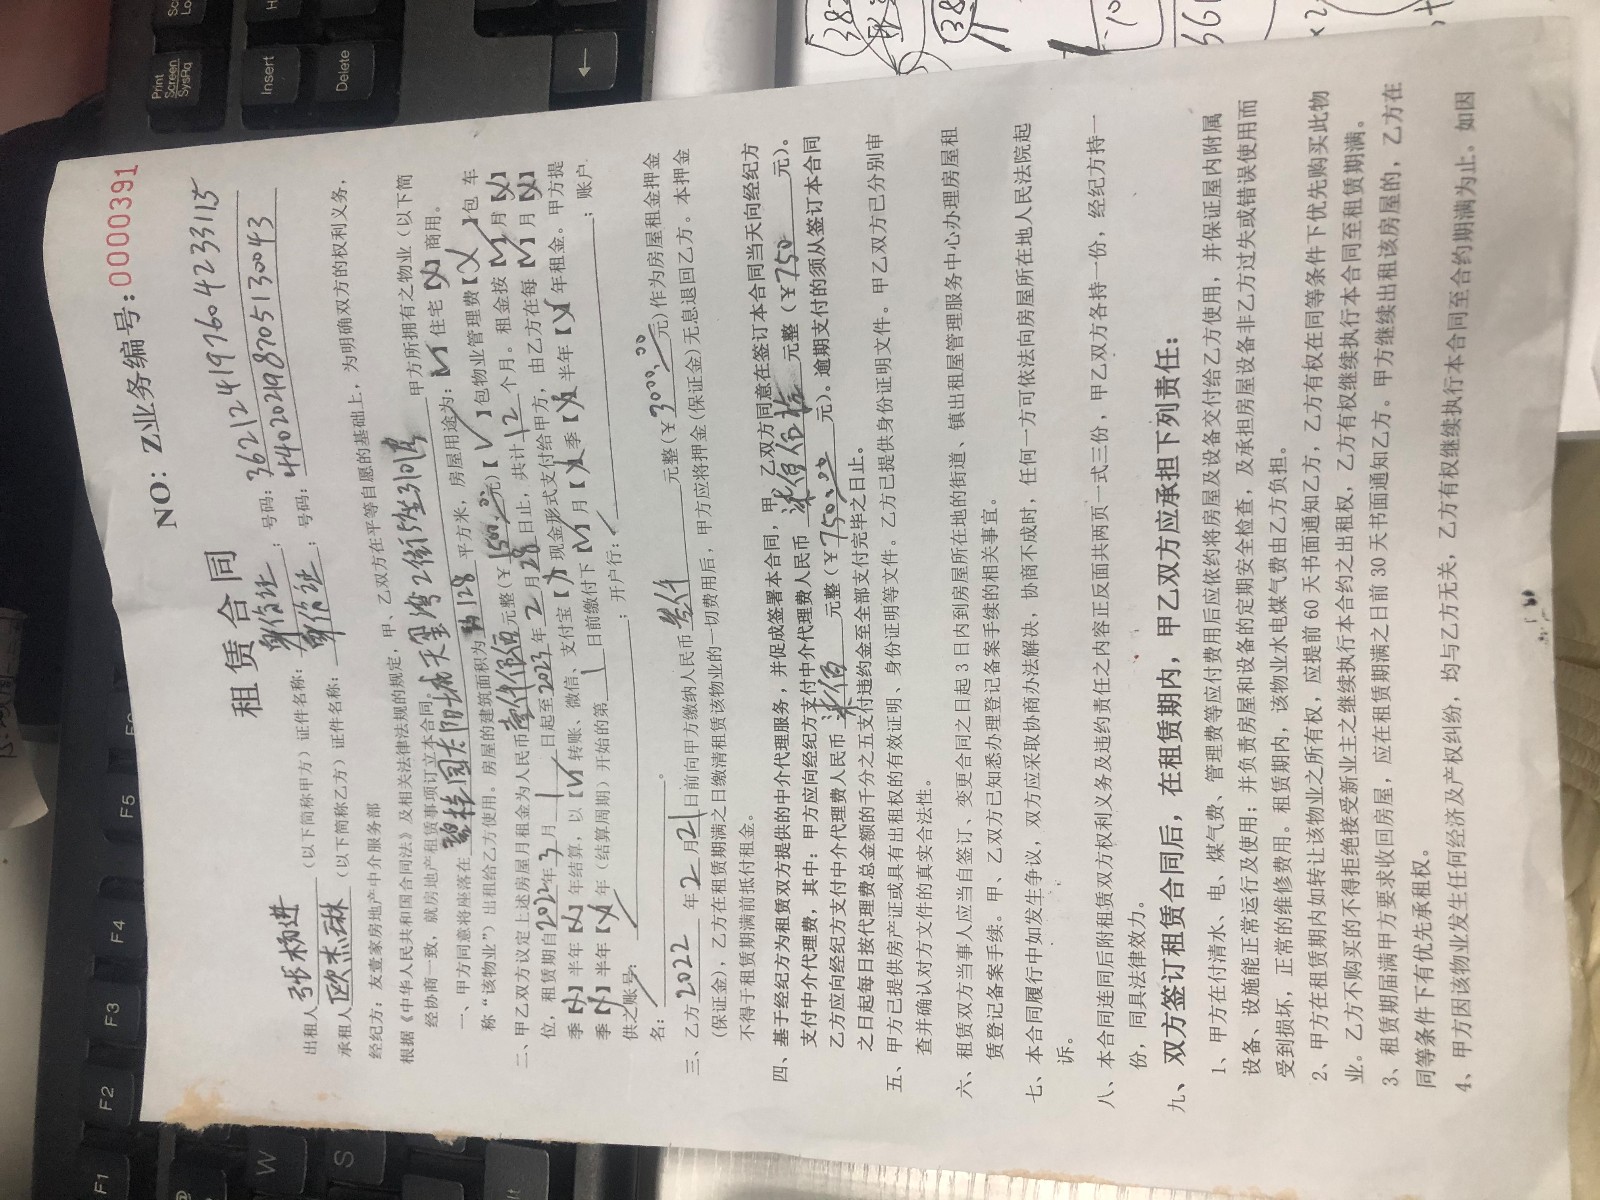 NO: Z业务编号:0000391
租赁合同
出租人 张杨进 (以下简称甲方) 证件名称: 身份证 ; 号码: 362124197604233115
承租人 欧杰琳 (以下简称乙方) 证件名称: 身份证 ; 号码: 440202198705130043
经纪方: 友壹家房地产中介服务部
根据《中华人民共和国合同法》及相关法律法规的规定, 甲、乙双方在平等自愿的基础上, 为明确双方的权利义务,
经协商一致, 就房地产租赁事项订立本合同。
一、甲方同意将座落在 碧桂园太阳城天玺湾2街5座 甲方所拥有之物业 (以下简
称“该物业”) 出租给乙方使用。房屋的建筑面积为 128 平方米, 房屋用途为:【√】住宅【X】商用。
二、甲乙双方议定上述房屋月租金为人民币 壹仟伍佰 元整 (¥1500.00元)【√】包物业管理费【X】包 车
位, 租赁期自2022年3月1日起至2023年2月28日止, 共计12个月。租金按【√】月【X】
季【X】半年【X】年结算, 以【√】转账、微信、支付宝【】现金形式支付给甲方, 由乙方在每【√】月【X】
季【X】半年【X】年 (结算周期) 开始的第 1 日前缴付下【√】月【X】季【X】半年【X】年租金。甲方提
供之账号: ; 开户行: ; 账户
名: 。
三、乙方2022年2月21日前向甲方缴纳人民币 叁仟 元整 (¥3000.00元) 作为房屋租金押金
(保证金), 乙方在租赁期满之日缴清租赁该物业的一切费用后, 甲方应将押金 (保证金) 无息退回乙方。本押金
不得于租赁期满前抵付租金。
四、基于经纪方为租赁双方提供的中介代理服务, 并促成签署本合同, 甲、乙双方同意在签订本合同当天向经纪方
支付中介代理费, 其中: 甲方应向经纪方支付中介代理费人民币 柒佰伍拾 元整 (¥750 元)。
乙方应向经纪方支付中介代理费人民币 柒佰 元整 (¥750.00 元)。逾期支付的须从签订本合同
之日起每日按代理费总金额的千分之五支付违约金至全部支付完毕之日止。
五、甲方已提供房产证或具有出租权的有效证明、身份证明等文件。乙方已提供身份证明文件。甲乙双方已分别审
查并确认对方文件的真实合法性。
六、租赁双方当事人应当自签订、变更合同之日起 3 日内到房屋所在地的街道、镇出租屋管理服务中心办理房屋租
赁登记备案手续。甲、乙双方已知悉办理登记备案手续的相关事宜。
七、本合同履行中如发生争议, 双方应采取协商办法解决, 协商不成时, 任何一方可依法向房屋所在地人民法院起
诉。
八、本合同连同后附租赁双方权利义务及违约责任之内容正反面共两页一式三份, 甲乙双方各持一份, 经纪方持一
份, 同具法律效力。
九、双方签订租赁合同后, 在租赁期内, 甲乙双方应承担下列责任:
1、甲方在付清水、电、煤气费、管理费等应付费用后应依约将房屋及设备交付给乙方使用, 并保证屋内附属
设备、设施能正常运行及使用; 并负责房屋和设备的定期安全检查, 及承担房屋设备非乙方过失或错误使用而
受到损坏, 正常的维修费用。租赁期内, 该物业水电煤气费由乙方负担。
2、甲方在租赁期内如转让该物业之所有权, 应提前 60 天书面通知乙方, 乙方有权在同等条件下优先购买此物
业。乙方不购买的不得拒绝接受新业主之继续执行本合约之出租权, 乙方有权继续执行本合同至租赁期满。
3、租赁期届满甲方要求收回房屋, 应在租赁期满之日前 30 天书面通知乙方。甲方继续出租该房屋的, 乙方在
同等条件下有优先承租权。
4、甲方因该物业发生任何经济及产权纠纷, 均与乙方无关, 乙方有权继续执行本合同至合约期满为止。如因
Print Screen SysRq
Insert
Delete
F1
F2
F3
F4
F5
W
S